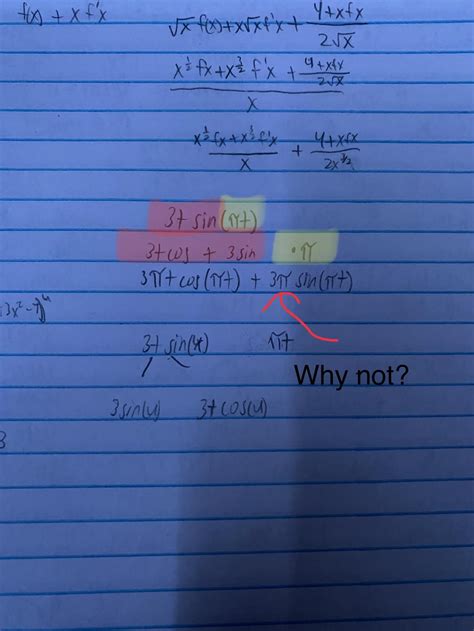 f(x) + x f'x
√x f(x) + x√x f'x + (4+xfx)/(2√x)
(x^(1/2) fx + x^(3/2) f'x + (4+xfx)/(2√x))/x
(x^(1/2) fx + x^(3/2) f'x)/x + (4+xfx)/(2x^(3/2))
3t sin(πt)
3t cos + 3 sin · π
3πt cos(πt) + 3π sin(πt)
3t sin(u) πt
Why not?
3 sin(u) 3t cos(u)
3